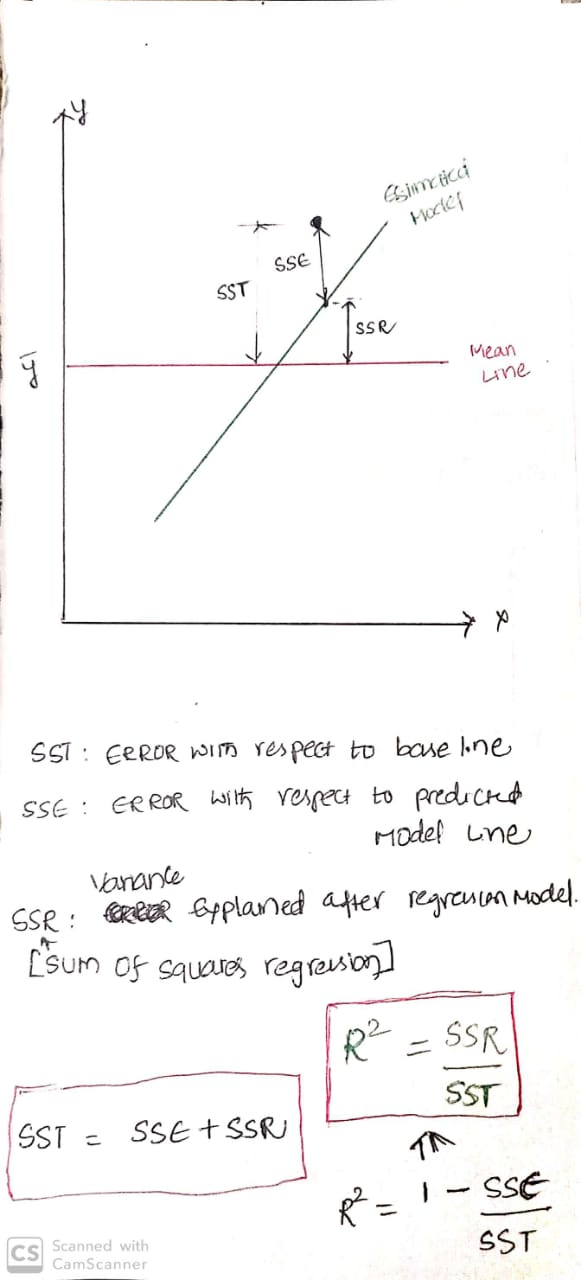 y
Esimated
Model
SSE
SST
SSR
ȳ
Mean
Line
x
SST : ERROR with respect to base line
SSE : ERROR with respect to predicted
Model Line
Variance
SSR : Explained after regression Model.
[sum of squares regression]
R² = SSR
SST
SST = SSE + SSR
R² = 1 - SSE
SST
CS Scanned with
CamScanner